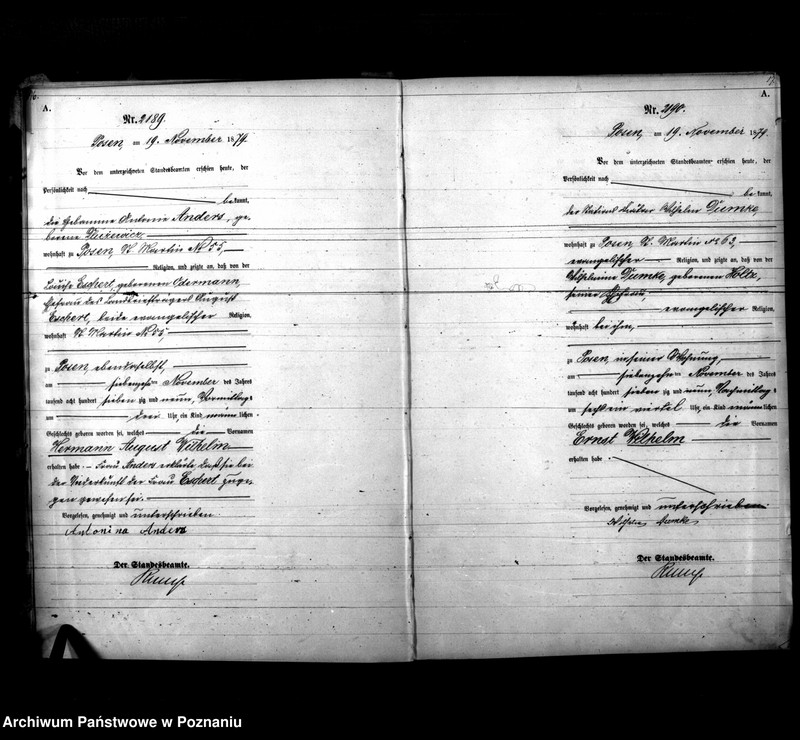 A.
Nr. 2189.
Posen, am 19. November 1879.
Vor dem unterzeichneten Standesbeamten erschien heute, der
Persönlichkeit nach
bekannt,
die Hebamme Antonie Anders, ge-
borene
wohnhaft zu Posen, St. Martin No 55,
Religion, und zeigte an, daß von der
Louise Escherl, geborenen Odermann,
Ehefrau des Landbriefträgers August
Escherl, beide evangelischer Religion,
wohnhaft St. Martin No 55,
zu Posen, ebendaselbst,
am siebenzehn November des Jahres
tausend acht hundert siebenzig und neun, Vormittags
um drei Uhr, ein Kind männlichen
Geschlechts geboren worden sei, welches die Vornamen
Hermann August Wilhelm
erhalten habe. Frau Anders erklärte, daß sie bei
der Niederkunft der Frau Escherl zuge-
gen gewesen sei.
Vorgelesen, genehmigt und unterschrieben.
Antonina Anders
Der Standesbeamte.
A.
Nr. 2190.
Posen, am 19. November 1879.
Vor dem unterzeichneten Standesbeamten erschien heute, der
Persönlichkeit nach
bekannt,
der Wilhelm Dumke
wohnhaft zu Posen, St. Martin No 63,
evangelischer Religion, und zeigte an, daß von der
Wilhelmine Dumke, geborenen Holtz,
seiner Ehefrau,
evangelischer Religion,
wohnhaft bei ihm,
zu Posen, in seiner Wohnung
am siebenzehn November des Jahres
tausend acht hundert siebenzig und neun, Nachmittags
um sechs ein viertel Uhr, ein Kind männlichen
Geschlechts geboren worden sei, welches die Vornamen
Ernst Wilhelm
erhalten habe.
Vorgelesen, genehmigt und unterschrieben.
Wilhelm Dumke
Der Standesbeamte.
Archiwum Państwowe w Poznaniu